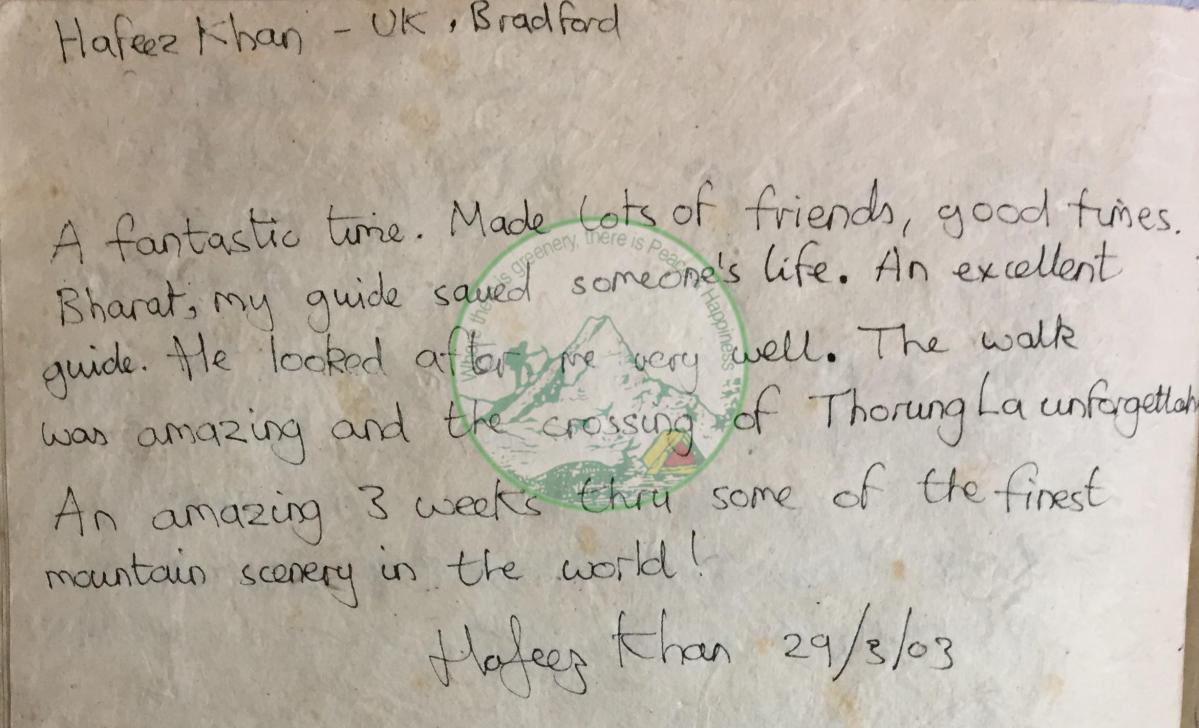 Hafeez Khan - UK, Bradford
A fantastic time. Made lots of friends, good times.
Bharat, my guide saved someone's life. An excellent
guide. He looked after me very well. The walk
was amazing and the crossing of Thorung La unforgettab
An amazing 3 weeks thru some of the finest
mountain scenery in the world!
Hafeez Khan 29/3/03
Where there is greenery, there is Peace Happiness